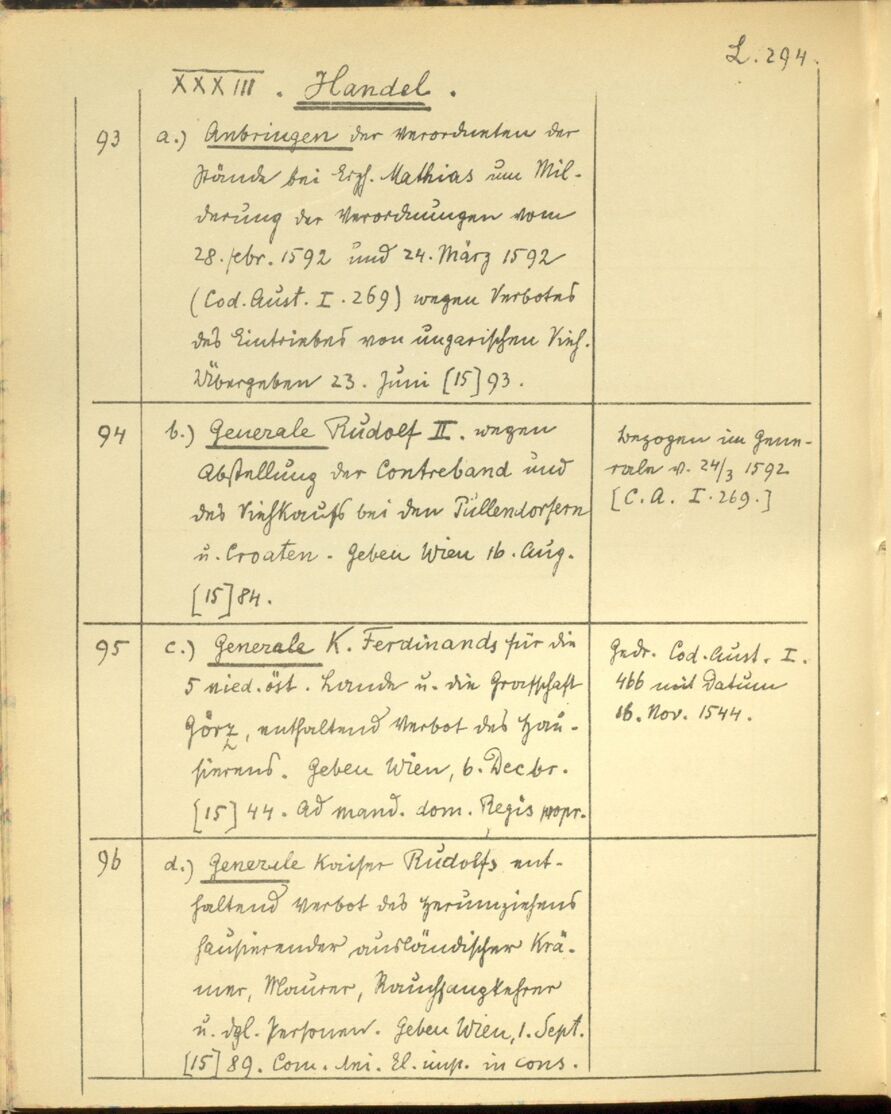 L. 294.
XXXIII. Handel.
93 a.) Anbringen der Verordneten der
Stände bei Erzh. Mathias um Mil-
derung der Verordnungen vom
28. Febr. 1592 und 24. März 1592
(Cod. Aust. I. 269) wegen Verbotes
des Eintriebes von ungarischen Vieh.
Übergeben 23. Juni [15]93.
94 b.) Generale Rudolf II. wegen
Abstellung der Contreband und
des Viehkaufs bei den Püllendorfern
u. Croaten. Geben Wien 16. Aug.
[15]84.
bezogen im Gene-
rale v. 24/3 1592
[C. A. I. 269.]
95 c.) Generale K. Ferdinands für die
5 nied. öst. Lande u. die Grafschaft
Görz, enthaltend Verbot des Hau-
sierens. Geben Wien, 6. Decbr.
[15]44. Ad mand. dom. Regis propr.
Gedr. Cod. Aust. I.
466 mit Datum
16. Nov. 1544.
96 d.) Generale Kaiser Rudolfs ent-
haltend Verbot des Herumziehens
hausierender ausländischer Krä-
mer, Maurer, Rauchfangkehrer
u. dgl. Personen. Geben Wien, 1. Sept.
[15]89. Com. dni. El. imp. in cons.